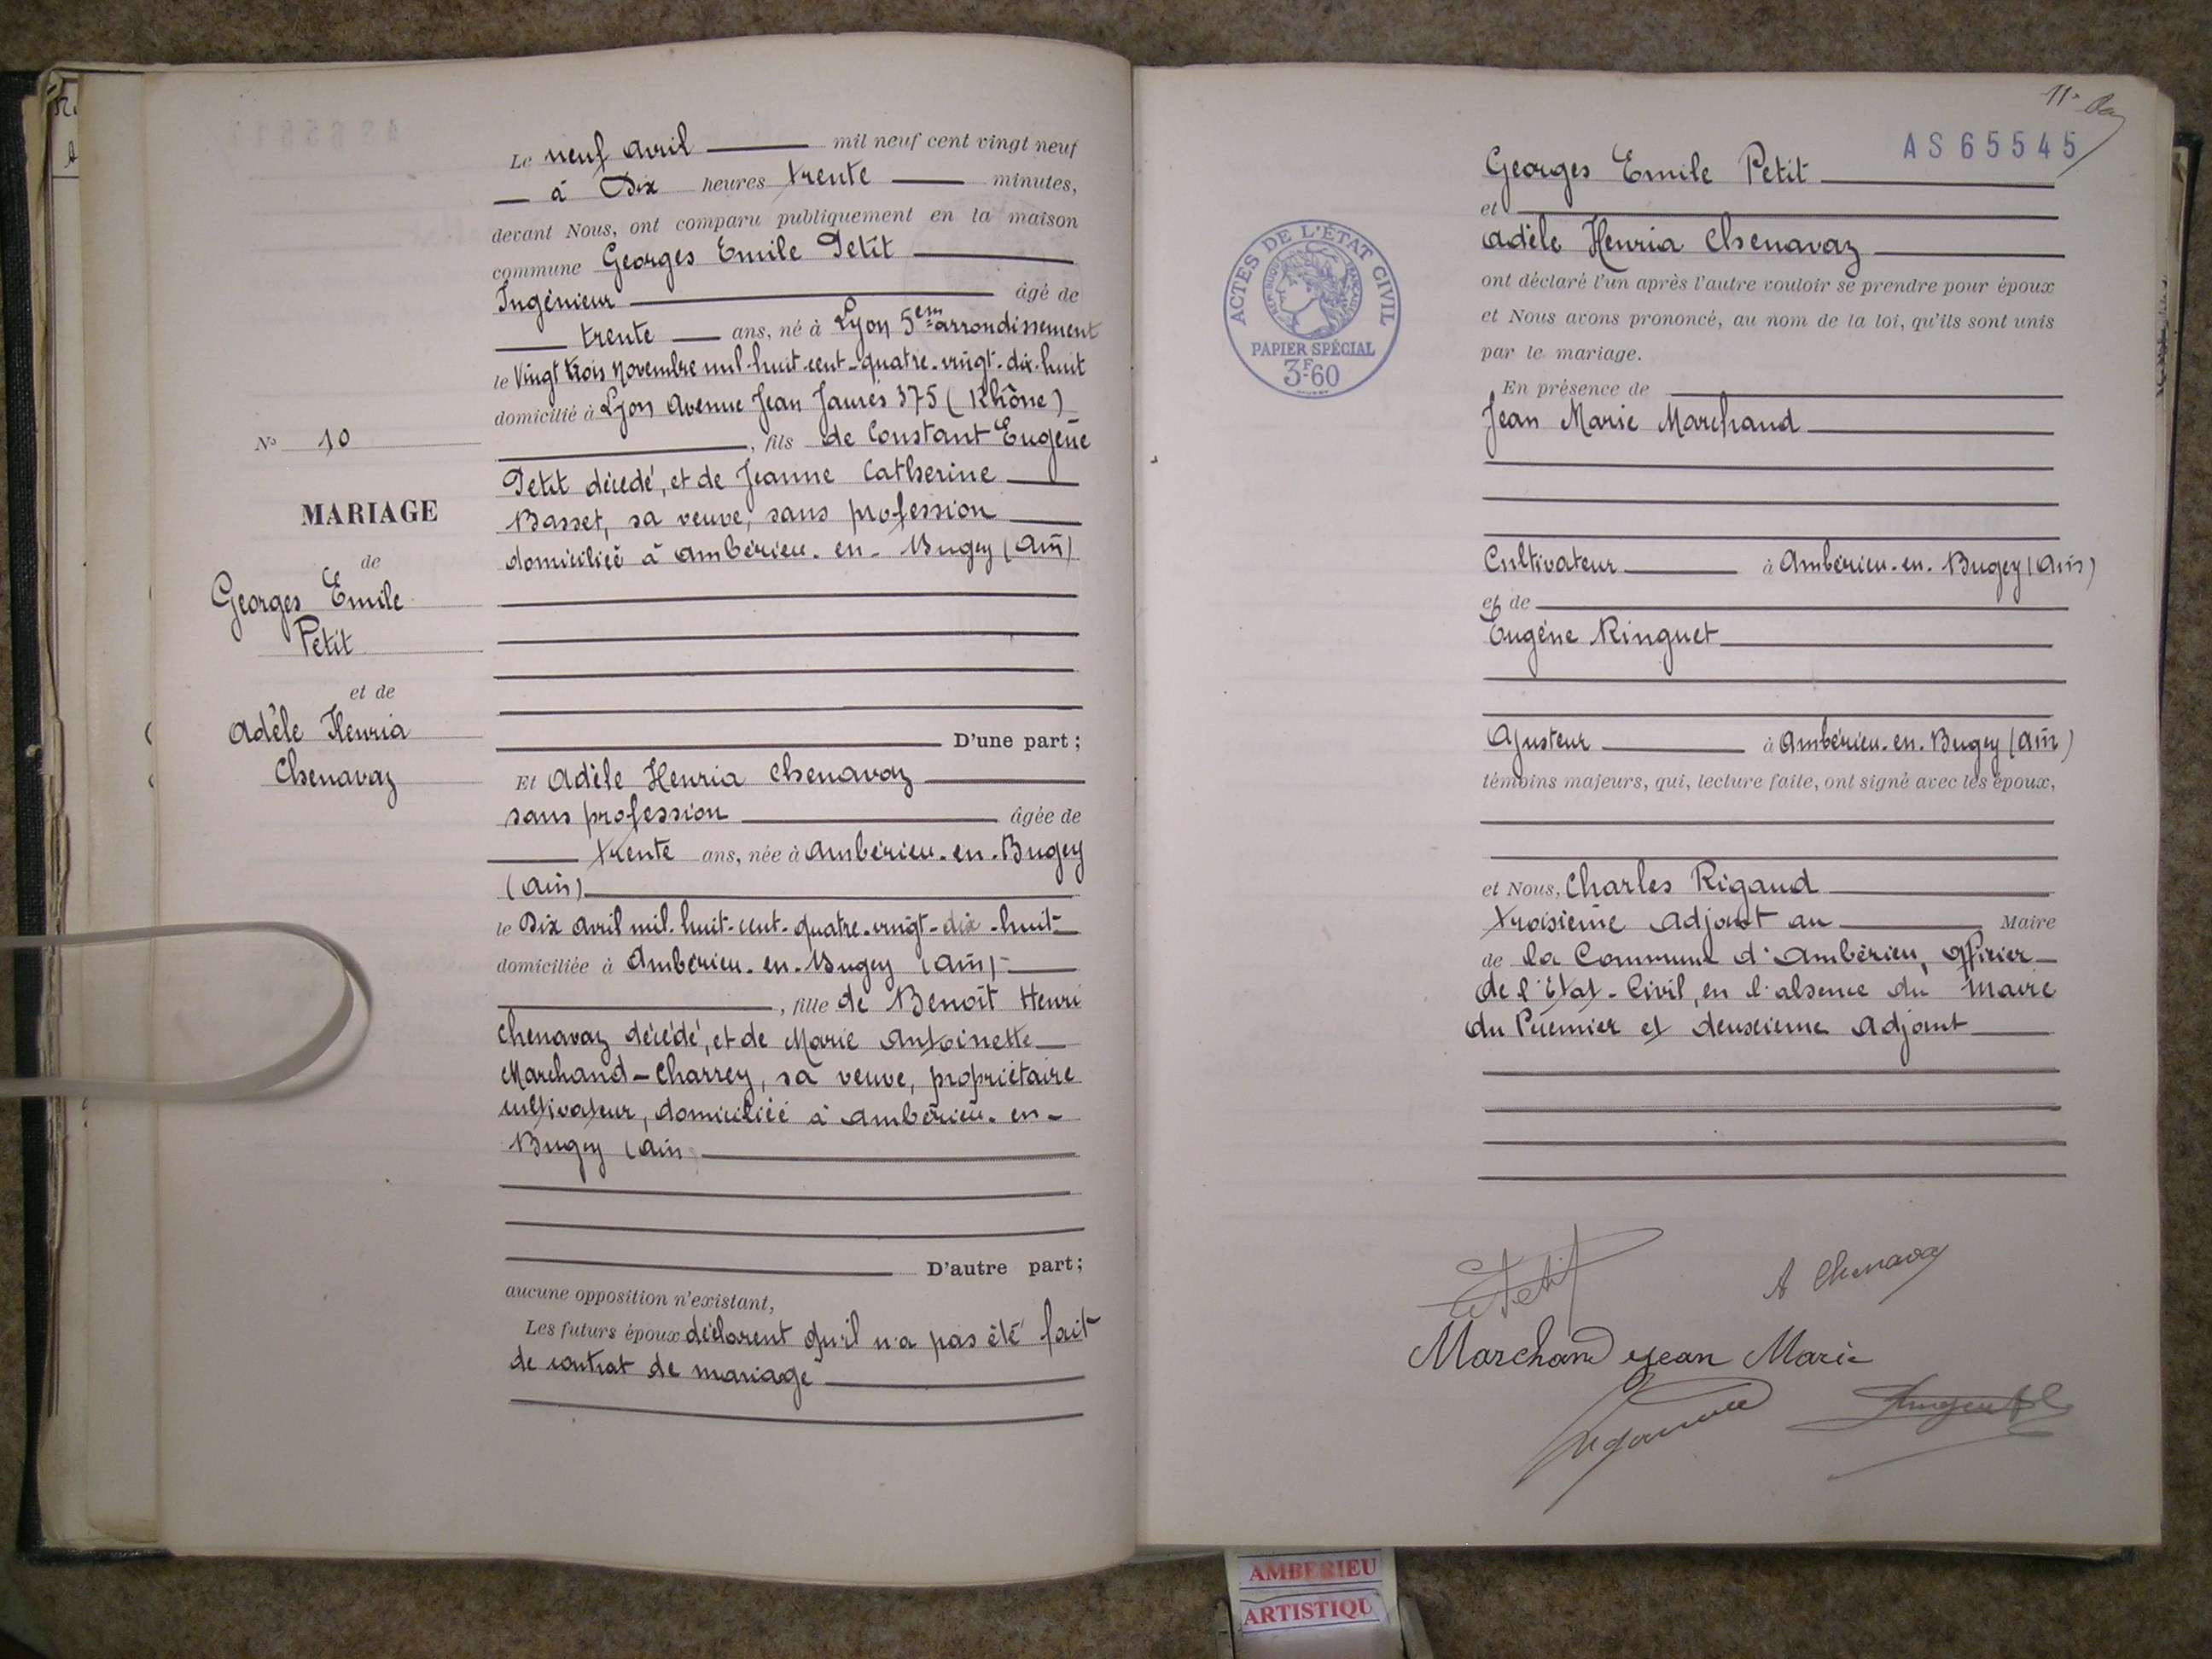 Le neuf avril mil neuf cent vingt neuf
à Dix heures trente minutes,
devant Nous, ont comparu publiquement en la maison
commune Georges Emile Petit
Ingénieur âgé de
trente ans, né à Lyon 5em arrondissement
le Vingt trois Novembre mil-huit-cent-quatre-vingt-dix-huit
domicilié à Lyon Avenue Jean Jaurès 375 (Rhône)
, fils de Constant Eugène
Petit décédé, et de Jeanne Catherine
Basset, sa veuve, sans profession
domiciliée à Ambérieu-en-Bugey (Ain)
D'une part ;
Et Adèle Henria Chenavaz
sans profession âgée de
trente ans, née à Ambérieu-en-Bugey
(Ain)
le Dix avril mil-huit-cent-quatre-vingt-dix-huit
domiciliée à Ambérieu-en-Bugey (Ain)
, fille de Benoît Henri
Chenavaz décédé, et de Marie Antoinette
Marchand-Charrey, sa veuve, propriétaire
cultivateur, domiciliée à Ambérieu-en-
Bugey (Ain
D'autre part ;
aucune opposition n'existant,
Les futurs époux déclarent qu'il n'a pas été fait
de contrat de mariage
No 10
MARIAGE
de
Georges Emile
Petit
et de
Adèle Henria
Chenavaz
11e
AS 65545
Georges Emile Petit
et
Adèle Henria Chenavaz
ont déclaré l'un après l'autre vouloir se prendre pour époux
et Nous avons prononcé, au nom de la loi, qu'ils sont unis
par le mariage.
En présence de
Jean Marie Marchand
Cultivateur à Ambérieu-en-Bugey (Ain)
et de
Eugène Ringuet
Ajusteur à Ambérieu-en-Bugey (Ain)
témoins majeurs, qui, lecture faite, ont signé avec les époux,
et Nous, Charles Rigaud
troisième Adjoint au Maire
de la Commune d'Ambérieu, Officier
de l'Etat-Civil, en l'absence du Maire
du Premier et deuxième Adjoint
ACTES DE L'ÉTAT CIVIL
RÉPUBLIQUE FRANÇAISE
PAPIER SPÉCIAL
3F60
Petit
A Chenavaz
Marchand Jean Marie
AMBERIEU
ARTISTIQU